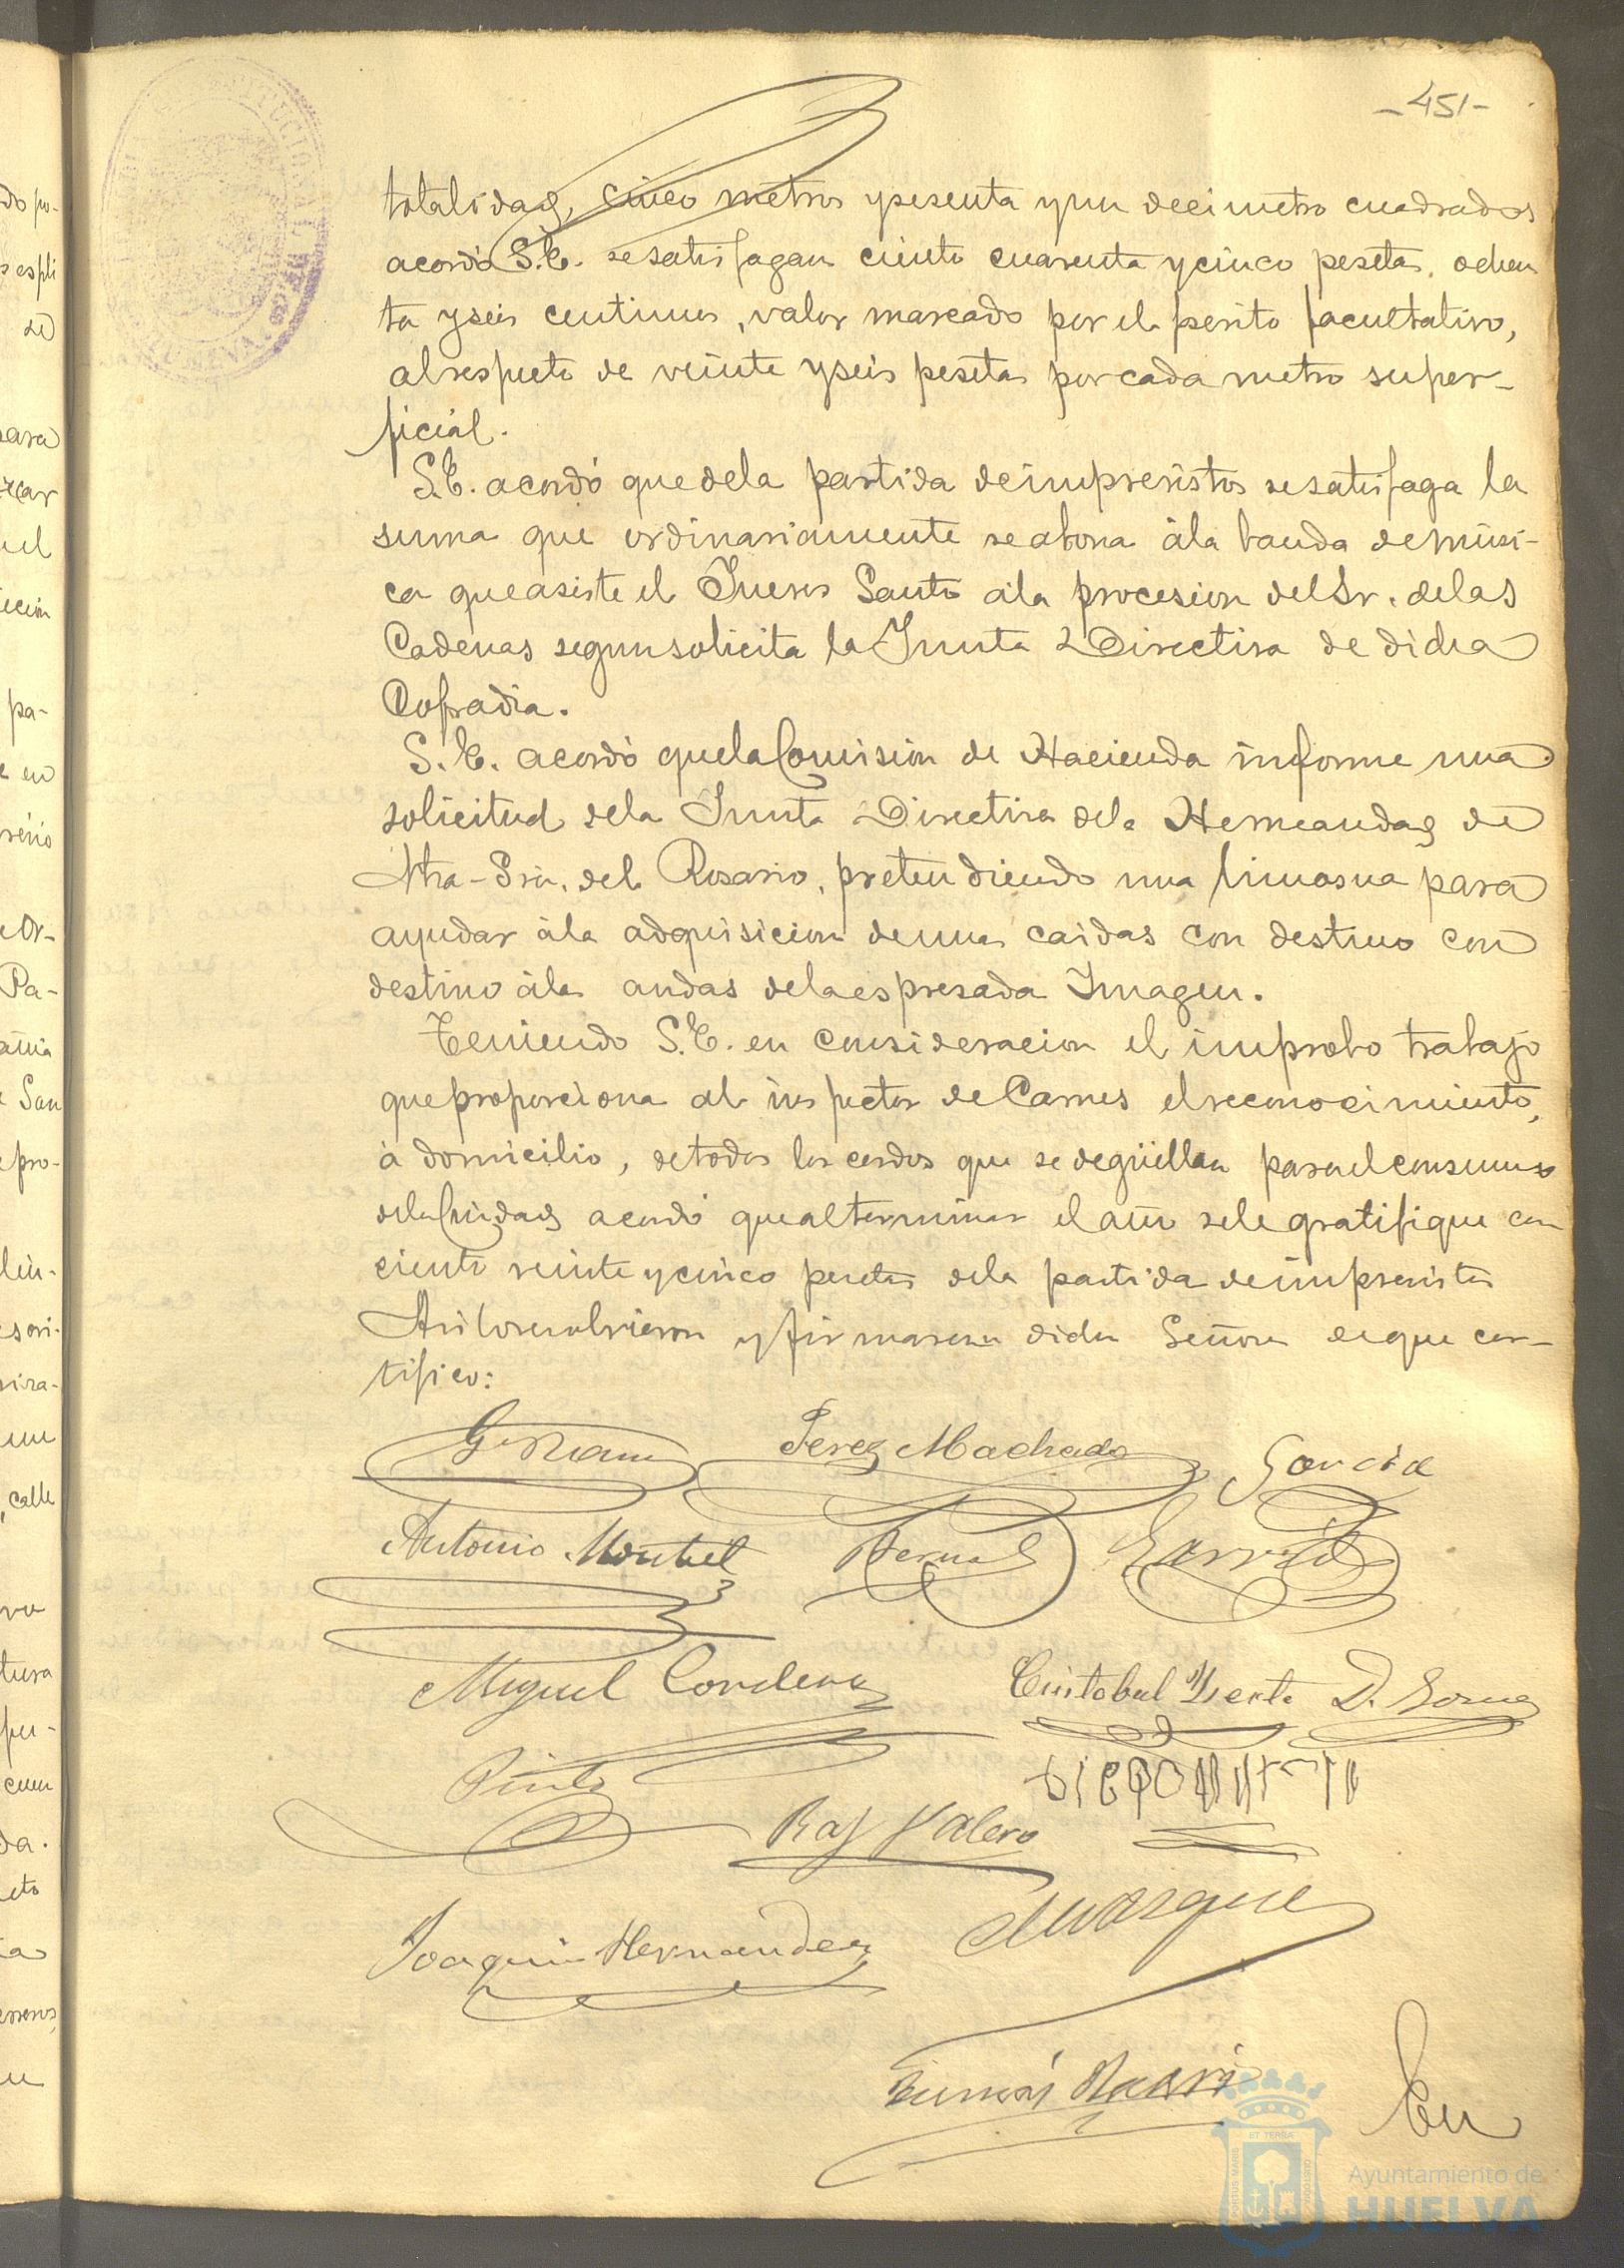 -451-
totalidad, cinco metros y sesenta y un decimetro cuadrados
acordó S.E. se satisfagan ciento cuarenta y cinco pesetas ochen
ta y seis centimos, valor marcado por el perito facultativo,
al respecto de veinte y seis pesetas por cada metro super-
ficial.
S.E. acordó que de la partida de imprevistos se satisfaga la
suma que ordinariamente se abona á la banda de músi-
ca que asiste el Jueves Santo á la procesion del Sr. de las
Cadenas segun solicita la Junta Directiva de dicha
Cofradia.
S.E. acordó que la Comisión de Hacienda informe una
solicitud de la Junta Directiva de la Hermandad de
Ntra. Sra. del Rosario, pretendiendo una limosna para
ayudar á la adquisicion de unas caidas con destino con
destino á las andas de la espresada Imagen.
Teniendo S.E. en consideracion el improbo trabajo
que proporciona al inspector de Carnes el reconocimiento,
á domicilio, de todos los cerdos que se degüellan para el consumo
de la Ciudad acordó que al terminar el año se le gratifique con
ciento veinte y cinco pesetas de la partida de imprevistos
Asi lo resolvieron y firmaron dichos Señores de que cer-
tifico:
Perez Machado
Garcia
Antonio Montiel
Bernal
Garrido
Miguel Cordero
Cristobal
D. Gomez
Pinto
Raf Valero
Joaquin Hernandez
En
Ayuntamiento de
HUELVA